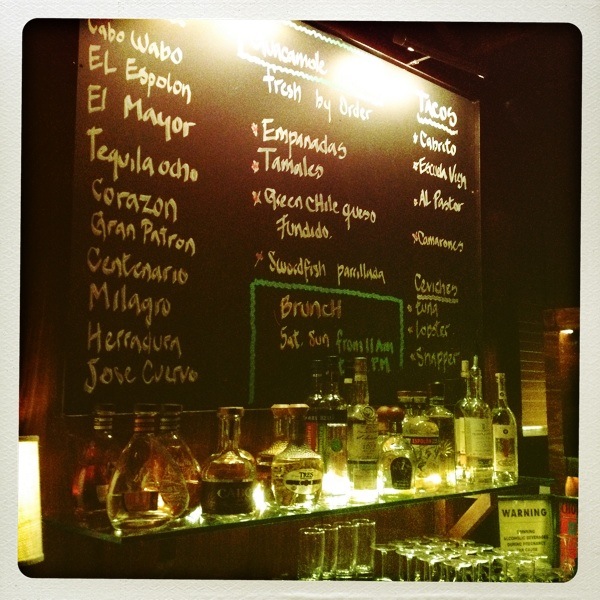 Cabo Wabo
EL Espolon
El Mayor
Tequila ocho
Corazon
Gran Patron
Centenario
Milagro
Herradura
Jose Cuervo
Guacamole
fresh by Order
Empanadas
Tamales
Green CHile queso
Fundido.
Swordfish parrillada
BRUNCH
Sat. Sun from 11 AM
PM
TACOS
Cabrito
Escuela Vieja
AL Pastor
Camarones
Ceviches
tuna
lobster
Snapper
TRES
WARNING
DRINKING
ALCOHOLIC BEVERAGES
DURING PREGNANCY
CAN CAUSE